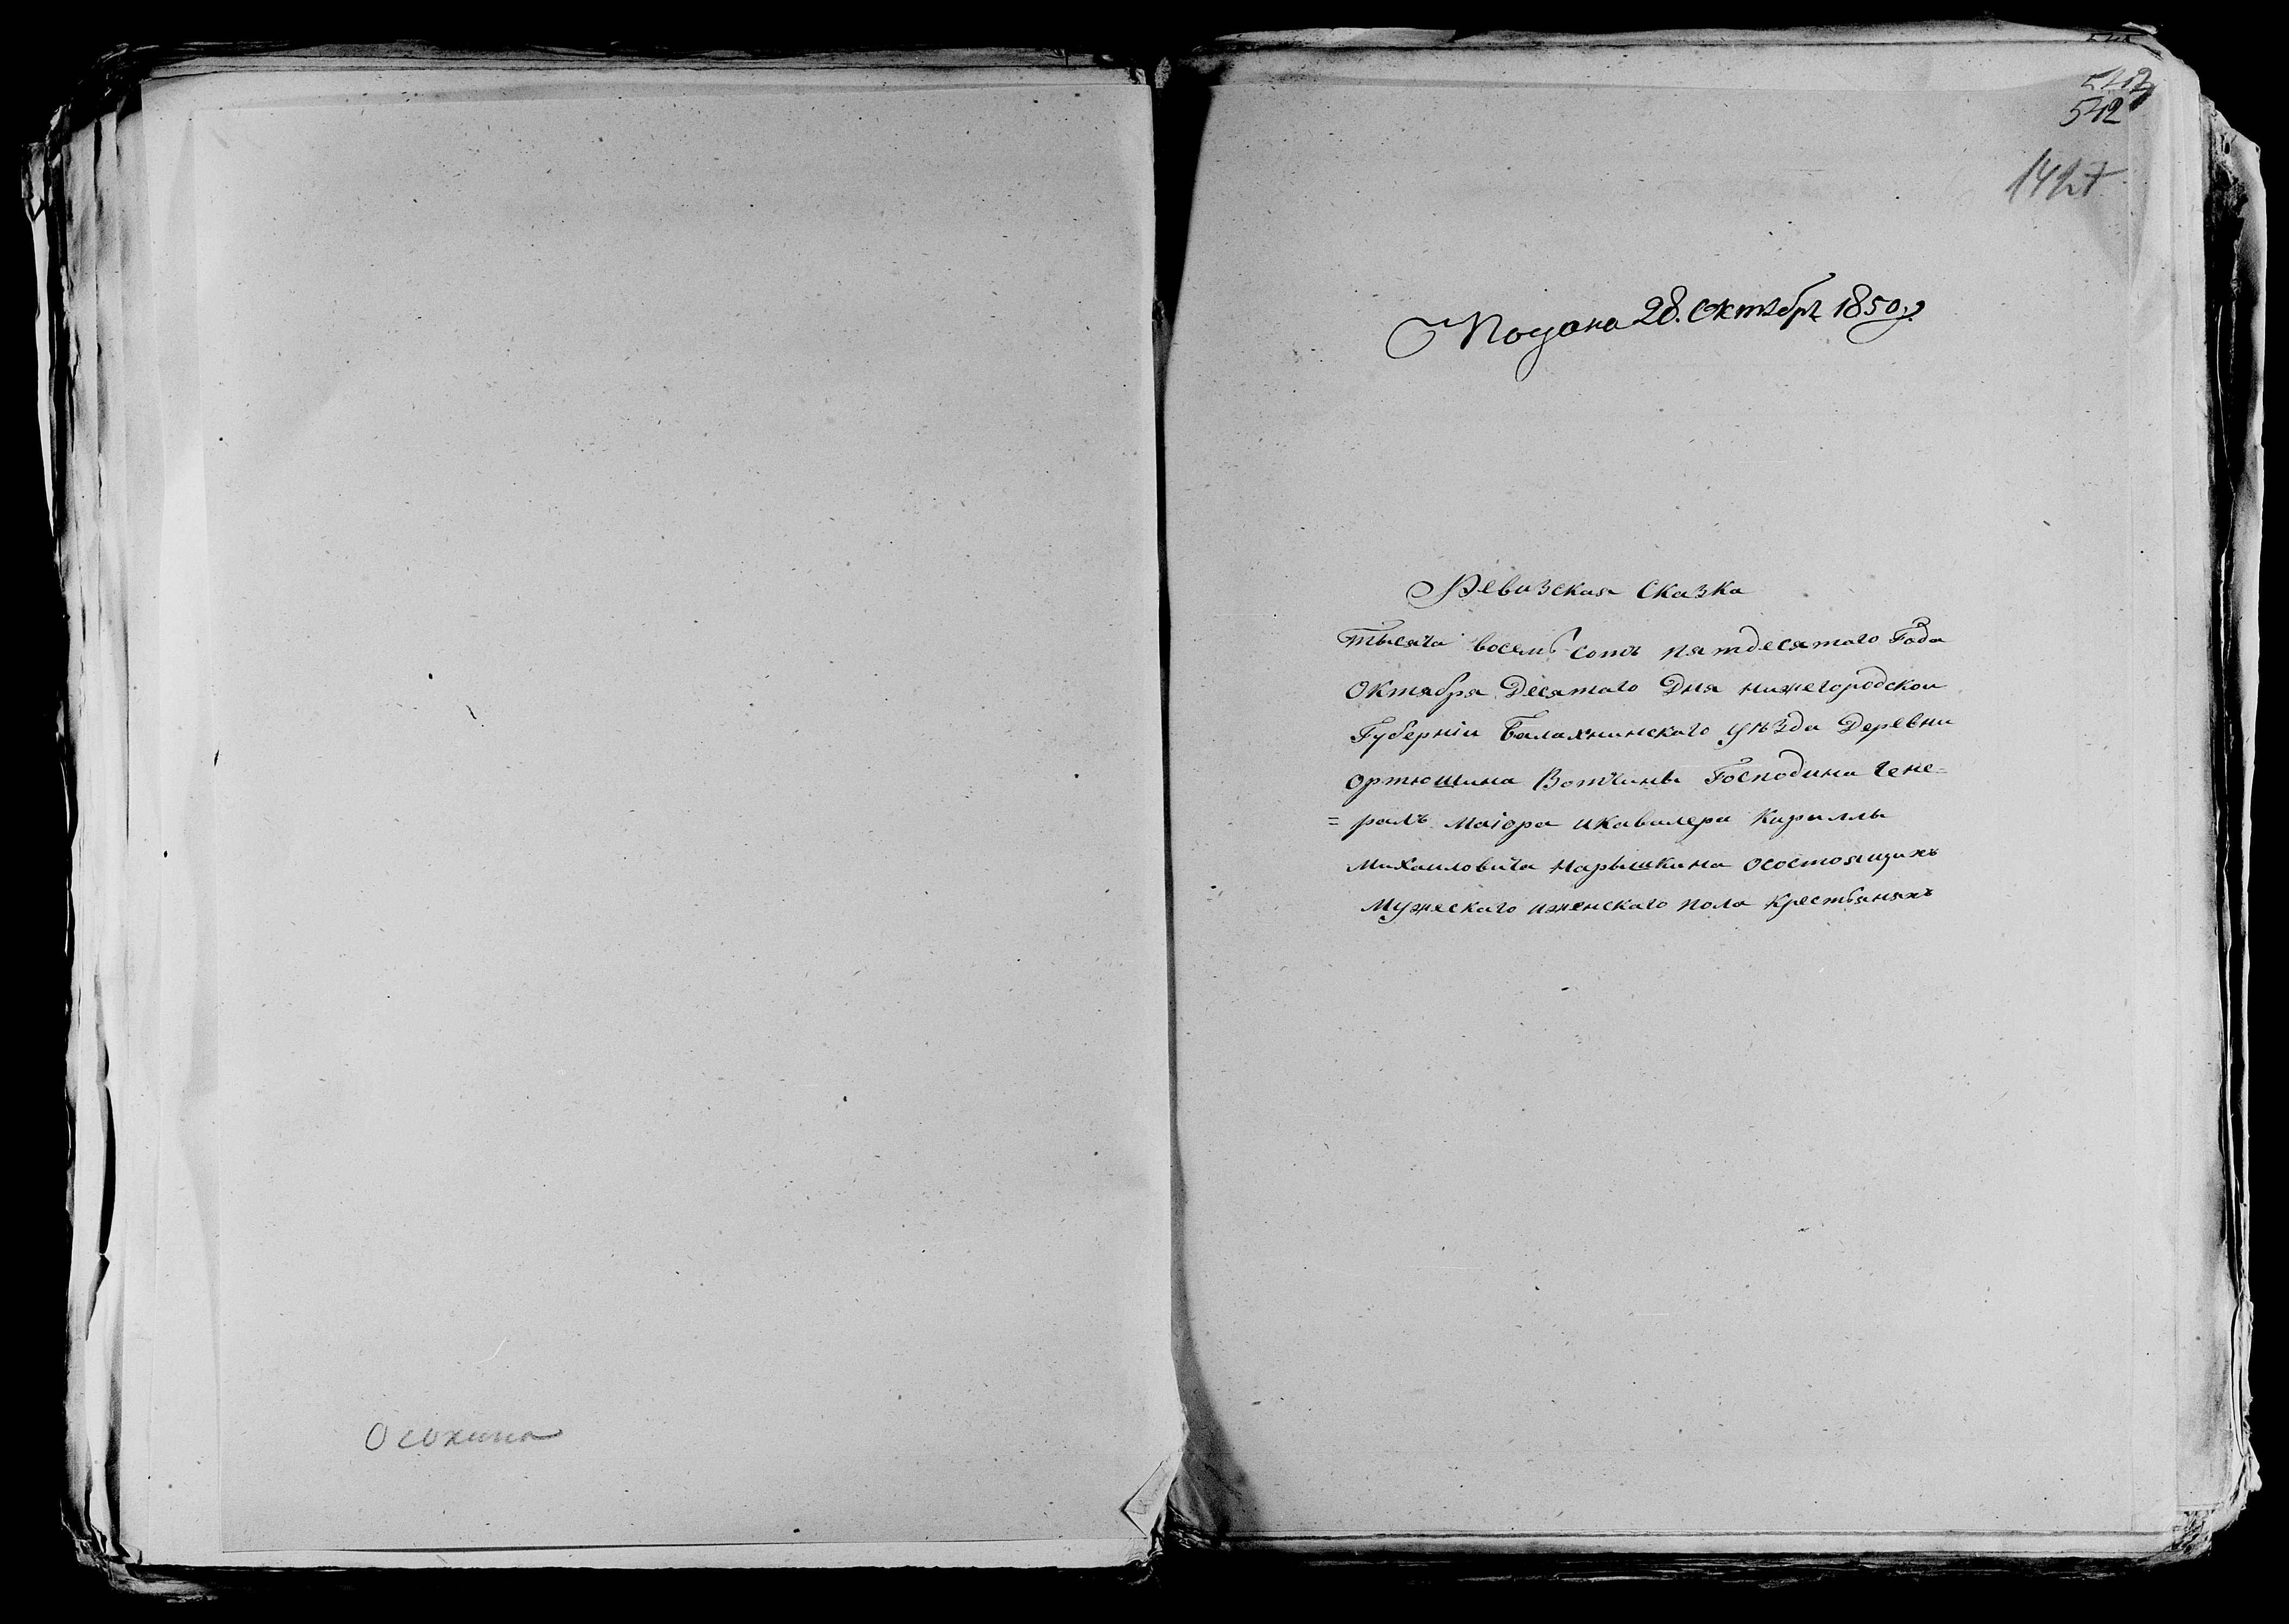 Осокина
542
542
1427
Подана 28. Октября 1850 г.
Ревизская Сказка
тысяча восемь сотъ пятдесятаго Года
Октября Десятаго Дня нижегородской
Губернiи Балахнинскаго уѣзда Деревни
Ортюшина Вотчины Господина Гене=
=ралъ маiора икавалера Кириллы
михаиловича нарышкина осостоящихъ
мужескаго иженскаго пола крестьянахъ